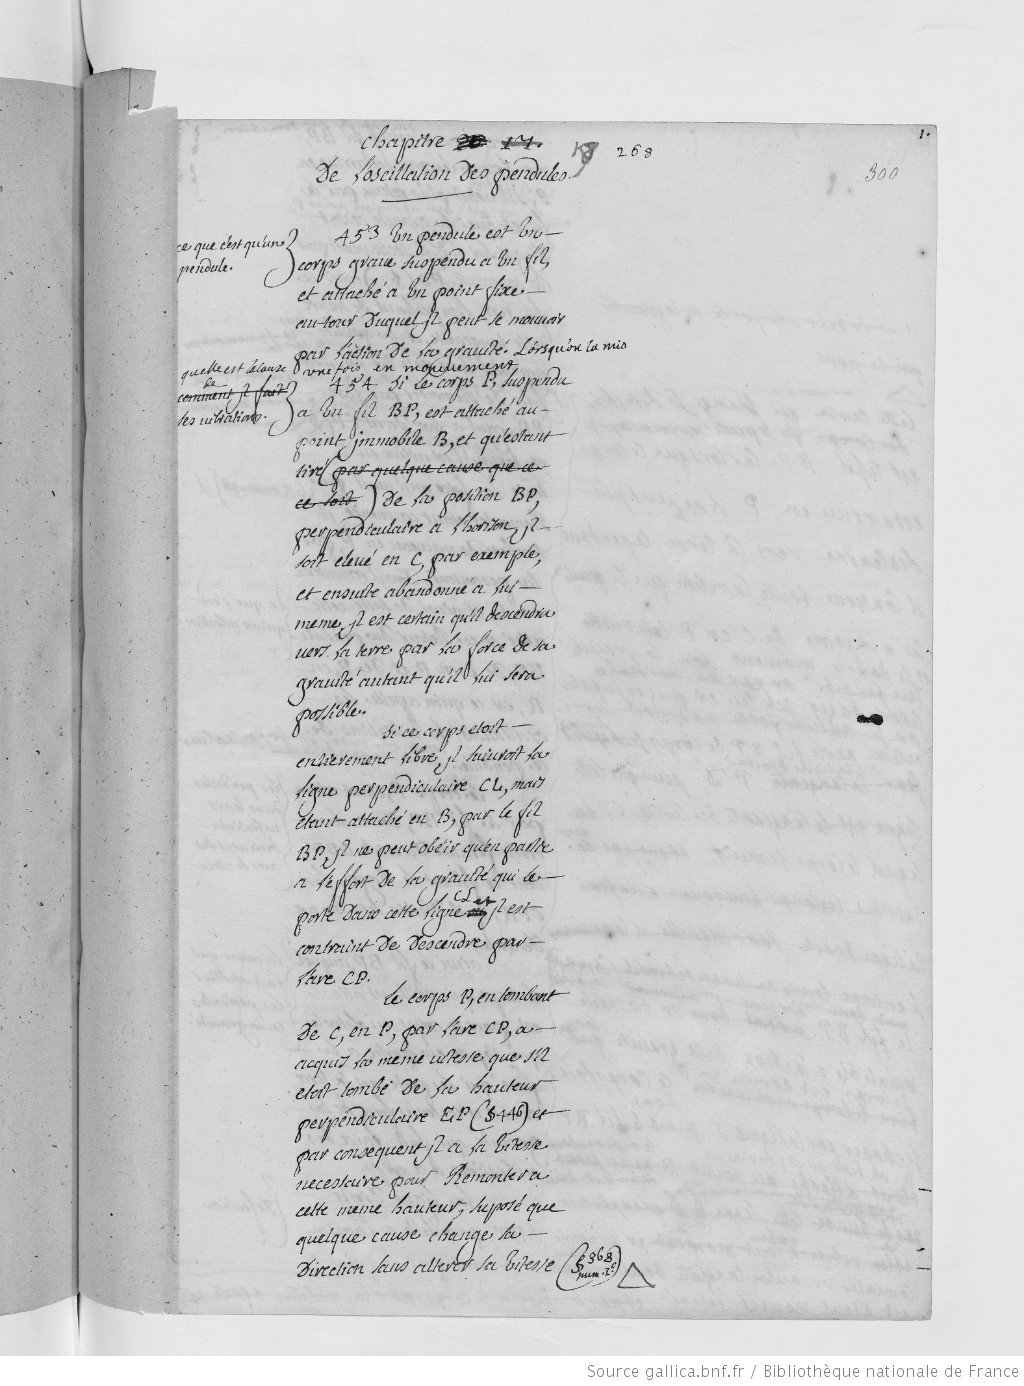 1.
chapitre 20 17. 18 268
300
De l'oscillation Des pendules.
ce que c'est qu'un
pendule.
453 Un pendule est Un
corps grave suspendu a Un fil,
et attaché a Un point fixe
autour Duquel jl peut se mouvoir
par l'action De la gravité. Lorsqu'on la mis
une fois en mouvement,
quelle est la cause
de
comment jl fait
ses vibrations.
454 Si le corps P, suspendu
a Un fil BP, est attaché au
point jmmobile B, et qu'estant
tiré (par quelque cause que ce
ce soit) De la position BP,
perpendiculaire a l'horison, jl
soit elevé en C, par exemple,
et ensuite abandonné a lui
meme, jl est certain qu'il descendra
vers la terre par la force de sa
gravité autant qu'il lui sera
possible.
Si ce corps etoit
entierement libre, jl suivroit la
ligne perpendiculaire CL, mais
etant attaché en B, par le fil
BP, jl ne peut obéir qu'en partie
a l'effort De la gravité qui le
porte Dans cette ligne CL et jl est
contraint De Descendre par
l'arc CP.
Le corps P, en tombant
De C, en P, par l'arc CP, a
acquis la meme vitesse que s'il
etoit tombé De la hauteur
perpendiculaire EP (§446) et
par consequent jl a la Vitesse
necessaire pour Remonter a
cette meme hauteur, suposé que
quelque cause change sa
Direction sans alterer sa Vitesse (§368
num. 2°)
Source gallica.bnf.fr / Bibliothèque nationale de France